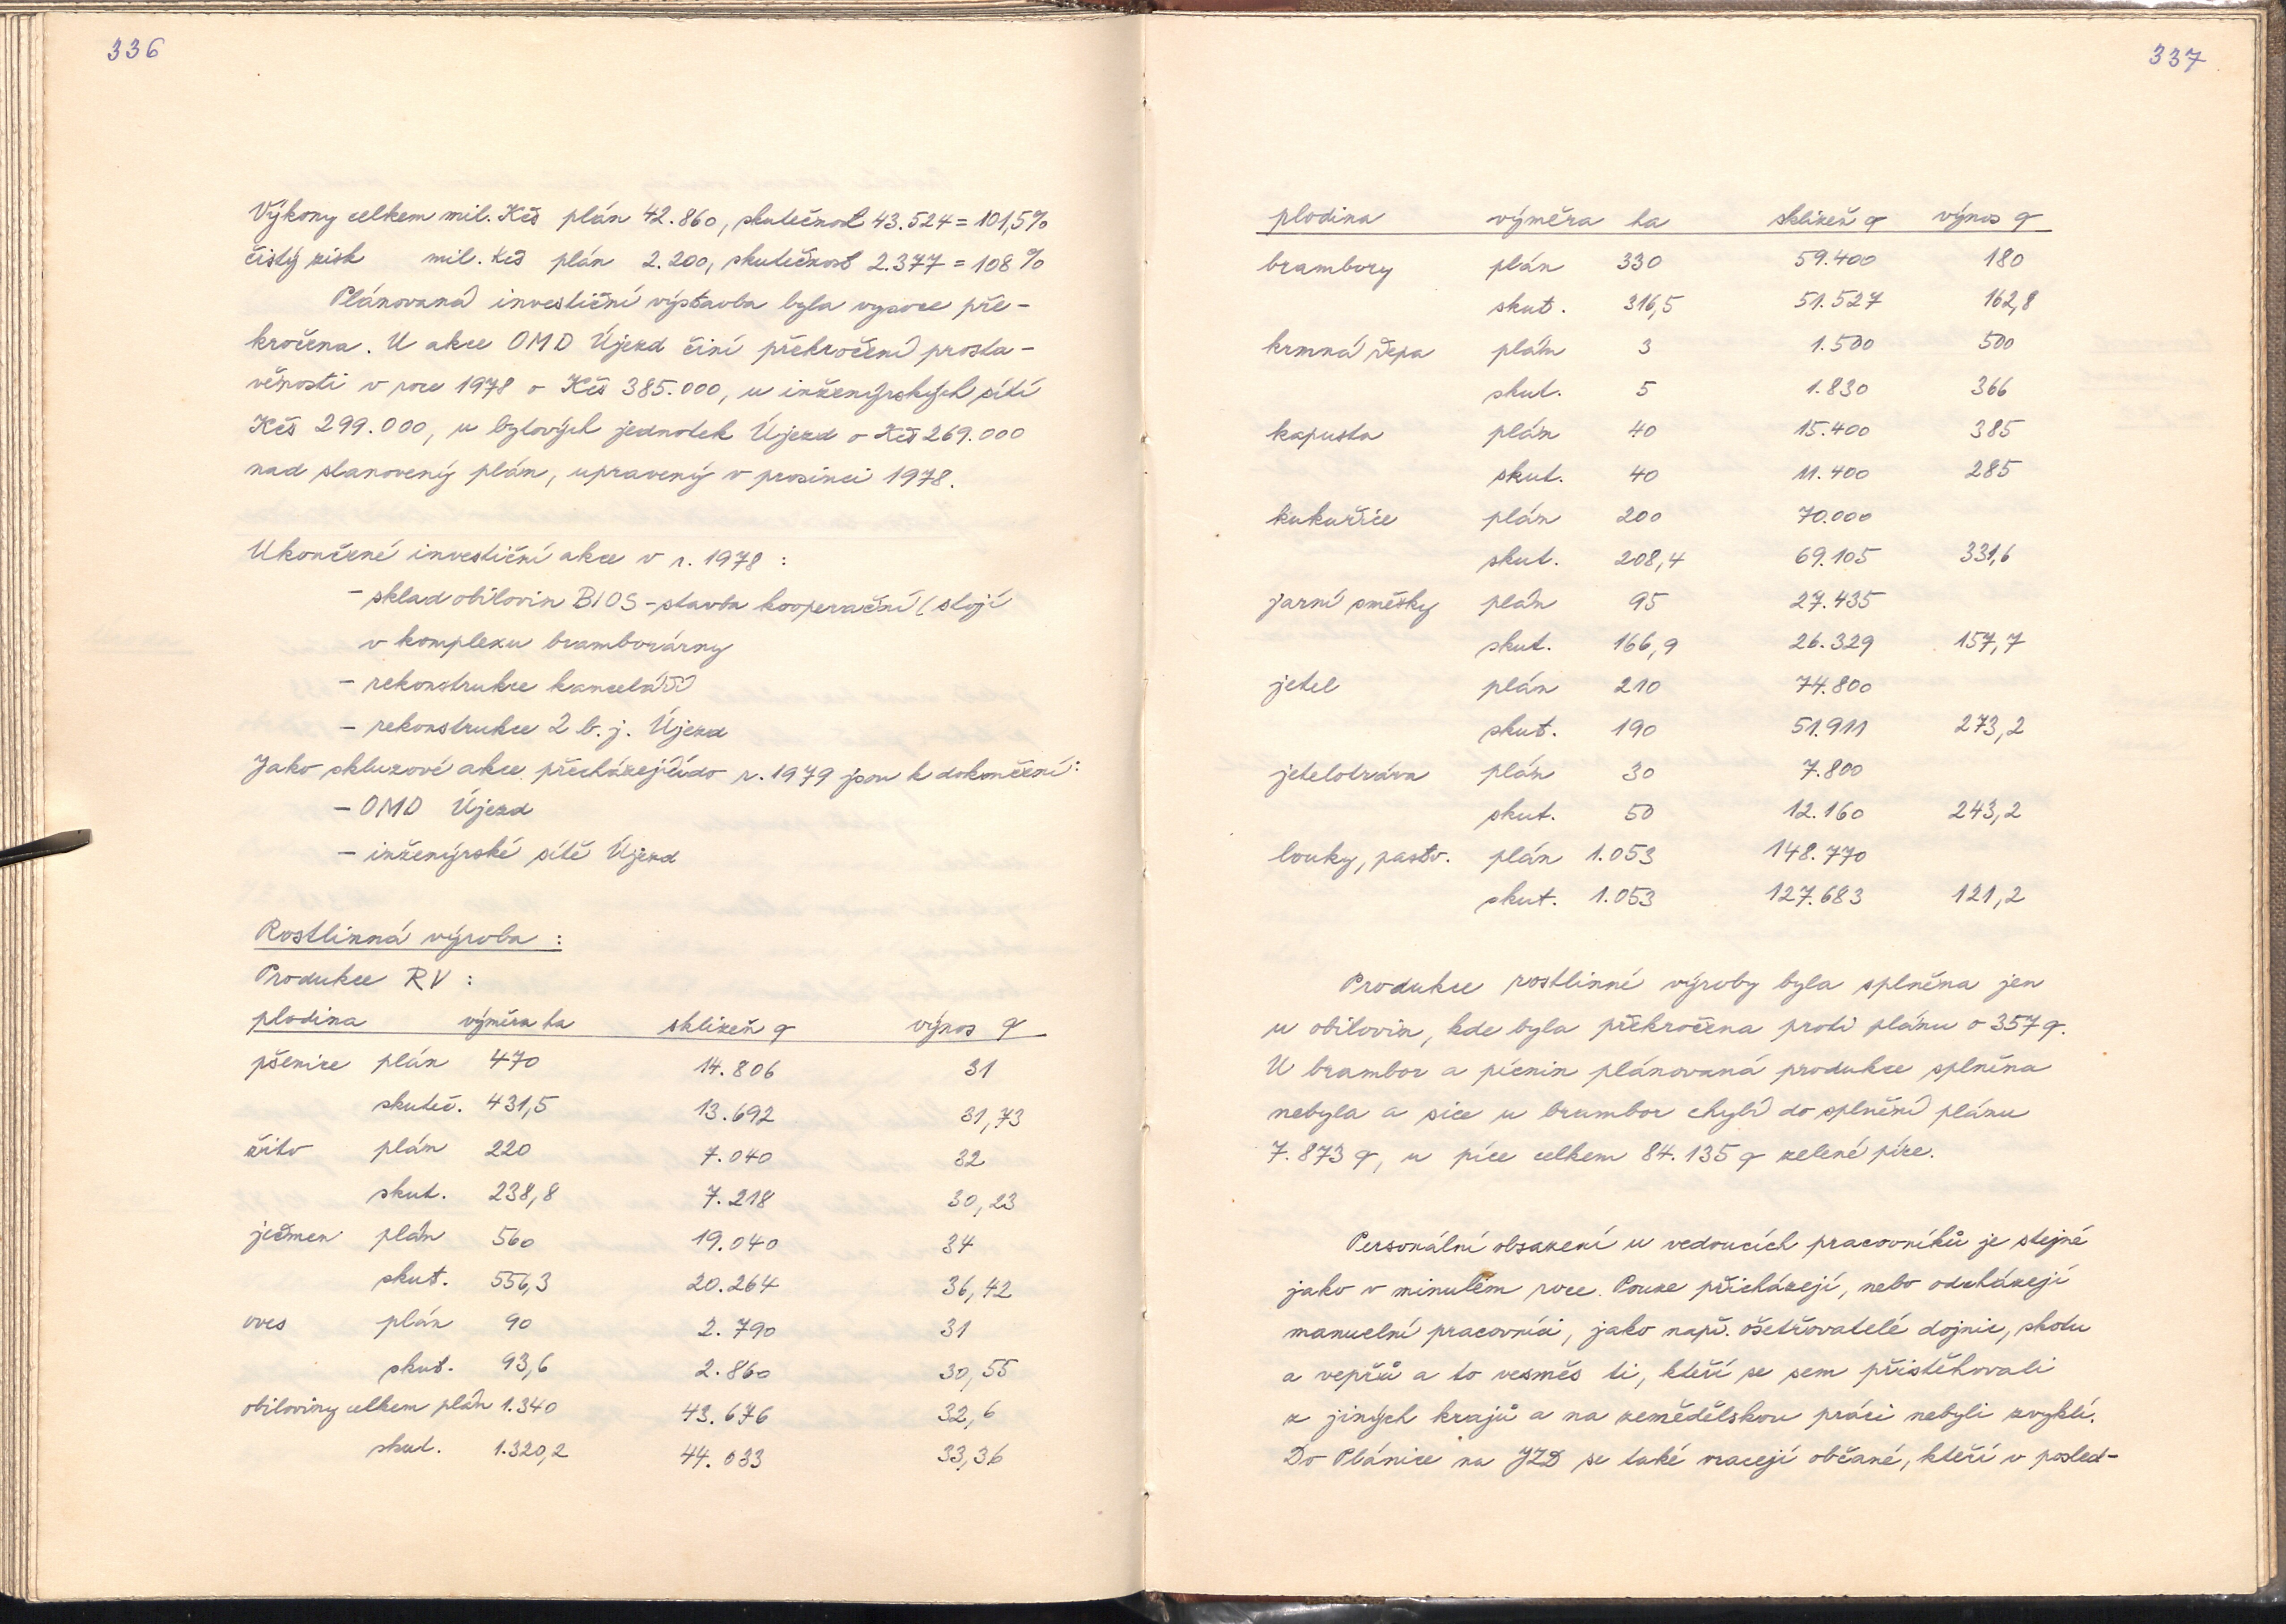 336
Výkony celkem mil. Kčs plán 42.860, skutečnost 43.524 = 101,5%
čistý zisk mil. Kčs plán 2.200, skutečnost 2.377 = 108 %
Plánovaná investiční výstavba byla vysoce pře-
kročena. U akce OMD Újezd činí překročení prosta-
věnosti v roce 1978 o Kčs 385.000, u inženýrských sítí
Kčs 299.000, u bytových jednotek Újezd o Kčs 269.000
nad stanovený plán, upravený v prosinci 1978.
Ukončené investiční akce v r. 1978 :
- sklad obilovin BIOS - stavba kooperační (stojí
v komplexu bramborárny
- rekonstrukce kanceláří
- rekonstrukce 2 b. j. Újezd
Jako skluzové akce přecházející do r. 1979 jsou k dokončení:
- OMD Újezd
- inženýrské sítě Újezd
Rostlinná výroba :
Produkce RV :
plodina výměra ha sklizeň q výnos q
pšenice plán 470 14.806 31
skuteč. 431,5 13.692 31,73
žito plán 220 7.040 32
skut. 238,8 7.218 30,23
ječmen plán 560 19.040 34
skut. 556,3 20.264 36,42
oves plán 90 2.790 31
skut. 93,6 2.860 30,55
obiloviny celkem plán 1.340 43.676 32,6
skut. 1.320,2 44.033 33,36
337
plodina výměra ha sklizeň q výnos q
brambory plán 330 59.400 180
skut. 316,5 51.527 162,8
krmná řepa plán 3 1.500 500
skut. 5 1.830 366
kapusta plán 40 15.400 385
skut. 40 11.400 285
kukuřice plán 200 70.000
skut. 208,4 69.105 331,6
jarní směsky plán 95 27.435
skut. 166,9 26.329 157,7
jetel plán 210 74.800
skut. 190 51.911 273,2
jetelotráva plán 30 7.800
skut. 50 12.160 243,2
louky, pastv. plán 1.053 148.770
skut. 1.053 127.683 121,2
Produkce rostlinné výroby byla splněna jen
u obilovin, kde byla překročena proti plánu o 357 q.
U brambor a pícnin plánovaná produkce splněna
nebyla a sice u brambor chybí do splnění plánu
7.873 q, u píce celkem 84.135 q zelené píce.
Personální obsazení u vedoucích pracovníků je stejné
jako v minulém roce. Pouze přicházejí, nebo odcházejí
manuelní pracovníci, jako např. ošetřovatelé dojnic, skotu
a vepřů a to vesměs ti, kteří se sem přistěhovali
z jiných krajů a na zemědělskou práci nebyli zvyklí.
Do Plánice na JZD se také vracejí občané, kteří v posled-